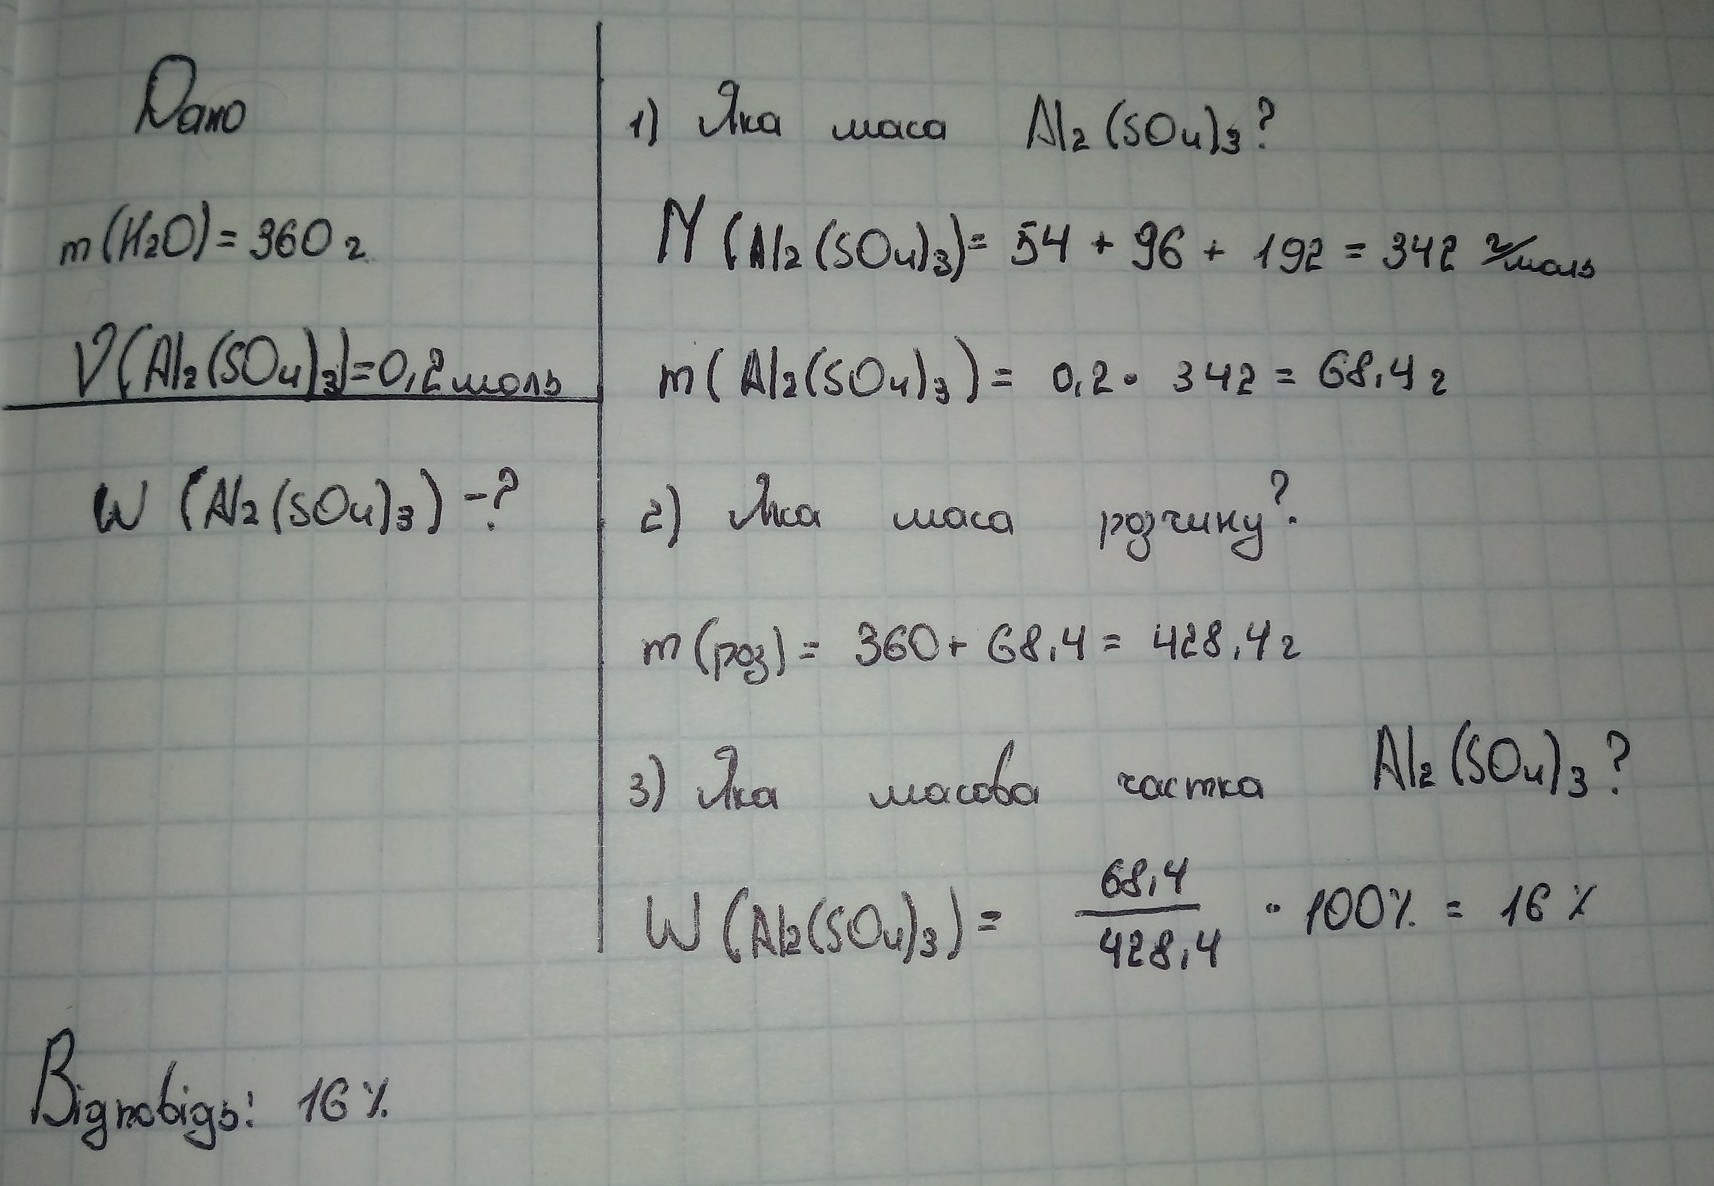 Дано
m(H2O) = 360 г
ν(Al2(SO4)3) = 0,2 моль
W (Al2(SO4)3) - ?
1) Яка маса Al2(SO4)3?
M (Al2(SO4)3) = 54 + 96 + 192 = 342 г/моль
m(Al2(SO4)3) = 0,2 · 342 = 68,4 г
2) Яка маса розчину?
m(роз) = 360 + 68,4 = 428,4 г
3) Яка масова частка Al2(SO4)3?
W (Al2(SO4)3) = 68,4 / 428,4 · 100% = 16 %
Відповідь: 16 %